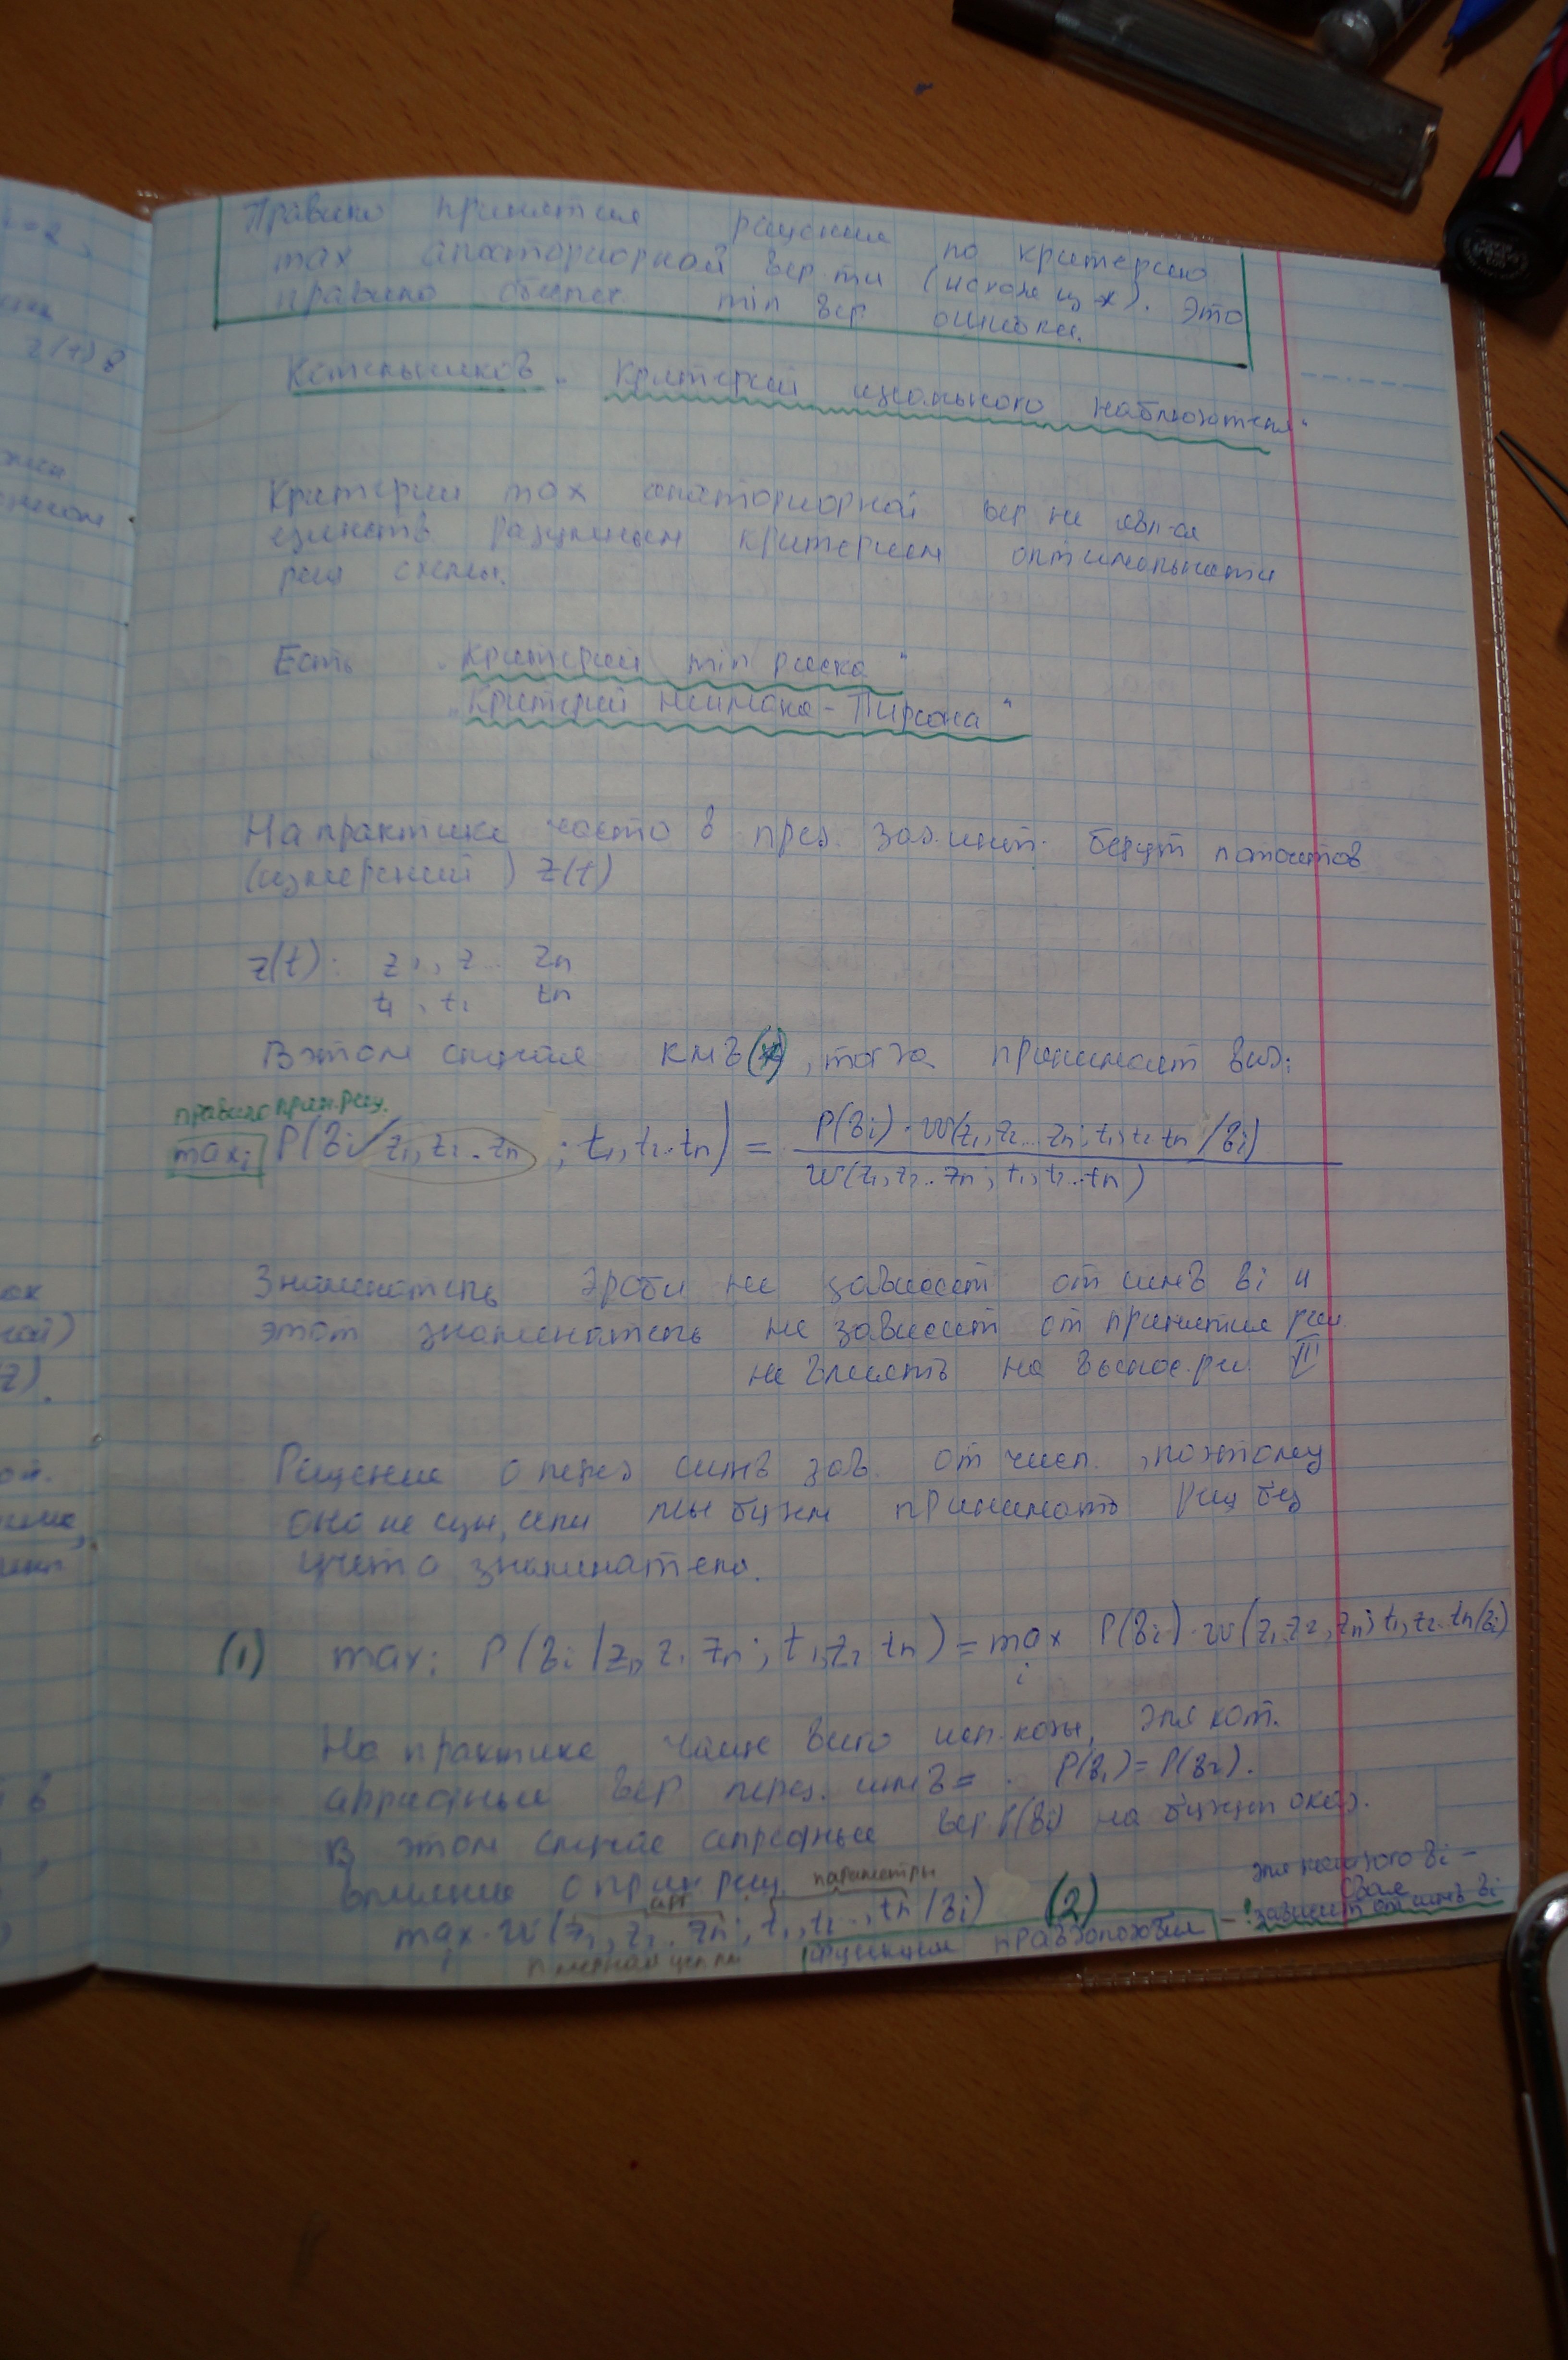 Правило принятия решения по критерию
max апосториорной вер-ти (исходя из *). Это
правило обеспеч min вер ошибки.
Котельников. Критерий идеального наблюдателя"
Критерий max апосториорной вер не явл-ся
единств разумным критерием оптимальности
реш схемы.
Есть „Критерий min риска"
„Критерий Неймана-Пирсона"
На практике часто в пред. зад. инт. берут n отсчетов
(измерений) z(t)
z(t): z1, z.. zn
t1, t2 tn
В этом случае КМВ(*), тогда принимает вид:
правило прин. реш.
maxi P(вi/z1, z2..zn; t1, t2..tn) = P(вi)·w(z1, z2...zn; t1, t2 tn/вi)
w(z1, z2..zn; t1, t2..tn)
Знаменатель дроби не зависит от симв вi и
этот знаменатель не зависит от принятия реш.
не влиять на вынос. реш.
Решение о перед симв зав. от числ., поэтому
оно не изм, если мы будем принимать реш без
учета знаминателя.
(1) maxi P(вi/z1, z. zn; t1, t2 tn) = max P(вi)·w(z1, z2, zn; t1, t2.. tn/вi)
i
На практике чаще всего исп. коды, для кот.
априорные вер перед. симв = . P(в1) = P(в2).
В этом случае априорные вер P(вi) на будут оказ.
влияние о прин реш
арг параметры
max w(z1, z2.. zn; t1, t2.., tn/вi) (2)
функция правдоподобия
для каждого вi –
своя
зависит от симв вi